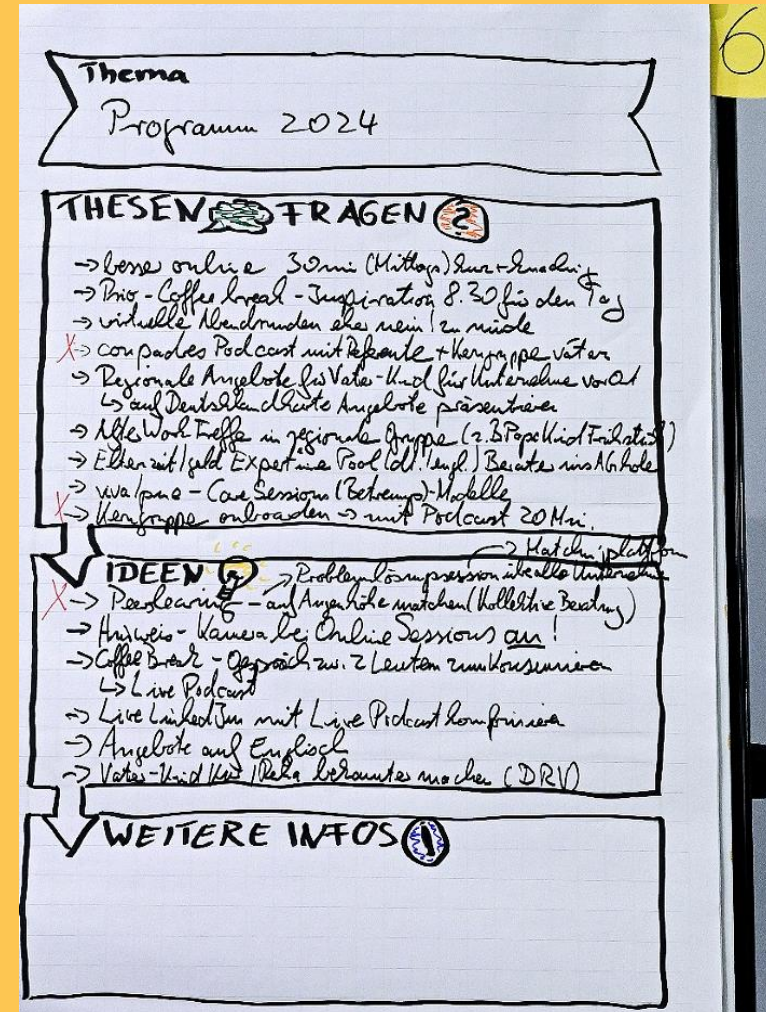 6
Thema
Programm 2024
THESEN FRAGEN ?
→ besse online 30 min (Mittags) kurz + knackig
→ Trio - Coffee break - Inspiration 8.30 für den Tag
→ virtuelle Abendrunden eher nein! zu müde
X → conpadres Podcast mit Referente + Kerngruppe väter
→ Regionale Angebote für Vater-Kind für Unternehme vor Ort
↳ auf Deutschlandkarte Angebote präsentieren
→ After Work Treffe in regionale Gruppe (z.B Papa Kind Frühstück)
→ Elternzeit/geld Expertinne Pool (dt./engl.) Berater ins AG hole
→ viva/pme - Care Sessions (Betreuungs)-Modelle
X → Kerngruppe onboarden → mit Podcast 20 Min.
→ Matchingplattform
IDEEN → Problemlösungssession über alle Unternehme
X → Peerlearning - auf Augenhöhe matchen (Kollektive Beratung)
→ Hinweis - Kamera bei Online Sessions an!
→ Coffee Break - Gespräch zw. 2 Leuten zum Konsumieren
↳ Live Podcast
→ Live LinkedIn mit Live Podcast kombinieren
→ Angebote auf Englisch
→ Vater-Kind Kur/Reha bekannter machen (DRV)
WEITERE INFOS !